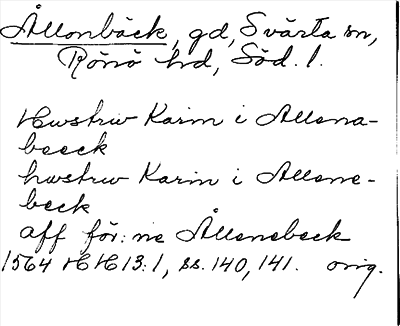 Ållonbäck, gd, Svärta sn,
Rönö hd, Söd. l.
Hustrw Karin i Allona-
beeck
hwstrw Karin i Allone-
beck
aff för:ne Ållonebeck
1564 HH 13:1, ss. 140, 141. orig.